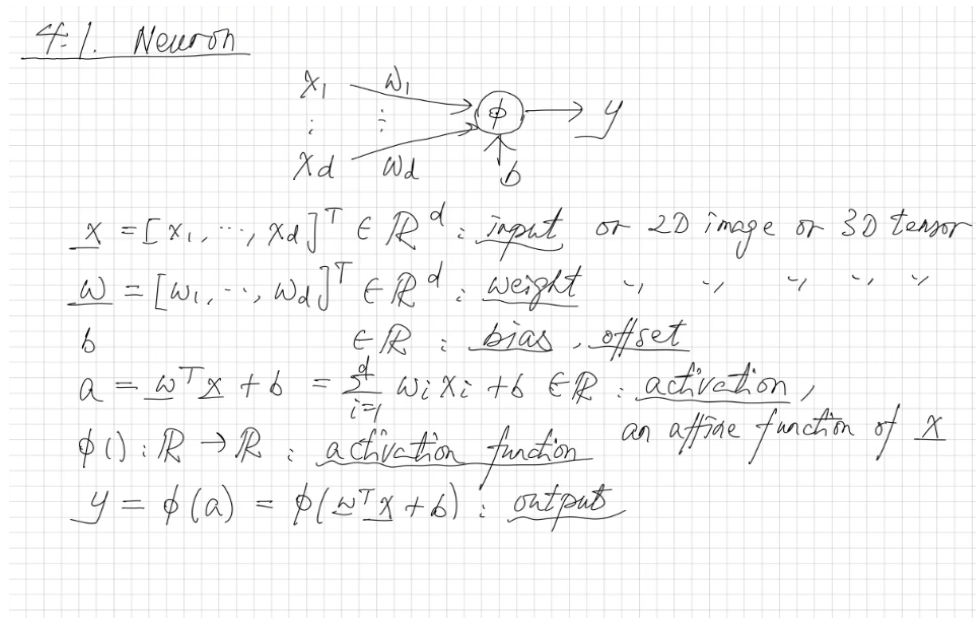 4.1. Neuron
x₁ w₁
⋮ ⋮ ϕ → y
x_d w_d b
x = [x₁, ⋯, x_d]ᵀ ∈ ℝᵈ : input or 2D image or 3D tensor
w = [w₁, ⋯, w_d]ᵀ ∈ ℝᵈ : weight 〃 〃 〃 〃 〃
b ∈ ℝ : bias, offset
a = wᵀx + b = ∑_{i=1}^{d} wᵢxᵢ + b ∈ ℝ : activation,
an affine function of x
ϕ() : ℝ → ℝ : activation function
y = ϕ(a) = ϕ(wᵀx + b) : output